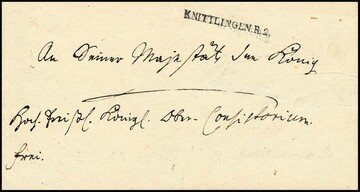 KNITTLINGEN.R.2.
An Seiner Majestät den König
Hochpreißl. Königl. Ober-Consistorium.
frei.